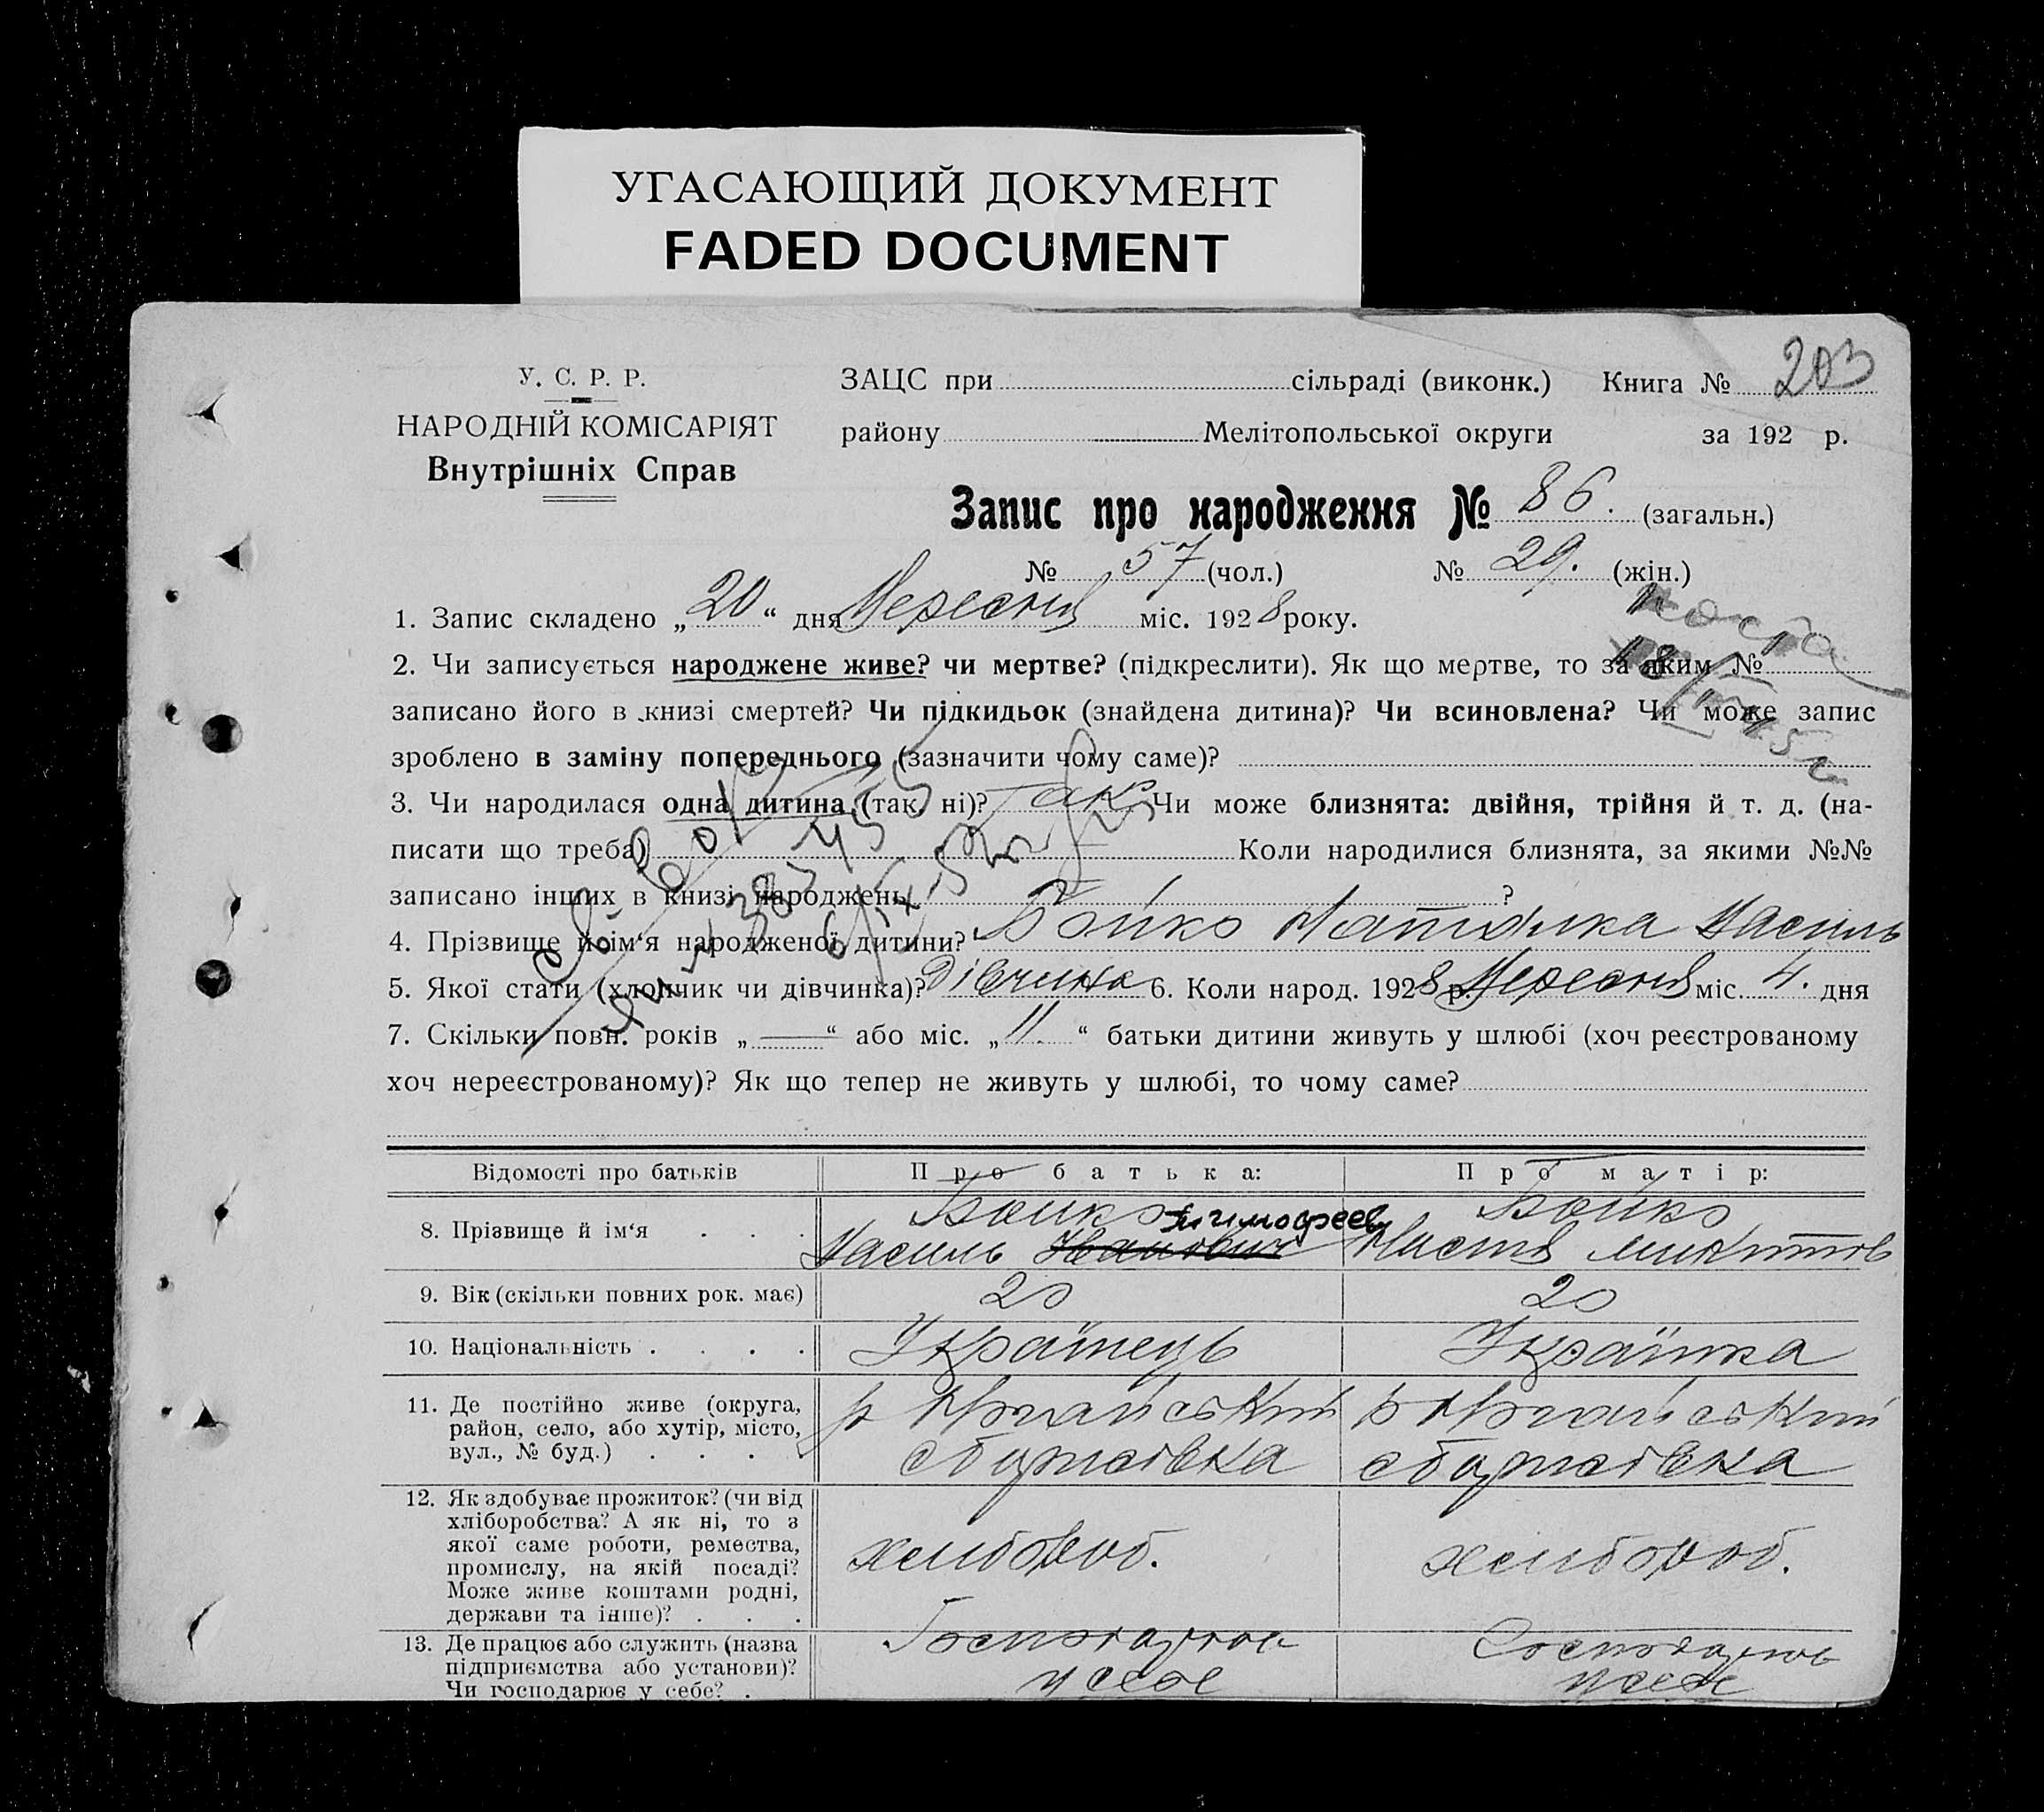 УГАСАЮЩИЙ ДОКУМЕНТ
FADED DOCUMENT
203
У. С. Р. Р.
НАРОДНІЙ КОМІСАРІЯТ
Внутрішніх Справ
ЗАЦС при сільраді (виконк.) Книга №
району Мелітопольської округи за 192 р.
Запис про народження № 86. (загальн.)
№ 57 (чол.) № 29. (жін.)
1. Запис складено „20“ дня Вересня міс. 1928 року.
2. Чи записується народжене живе? чи мертве? (підкреслити). Як що мертве, то за яким №
записано його в книзі смертей? Чи підкидьок (знайдена дитина)? Чи всиновлена? Чи може запис
зроблено в заміну попереднього (зазначити чому саме)?
3. Чи народилася одна дитина (так, ні)? так Чи може близнята: двійня, трійня й т. д. (на-
писати що треба) Коли народилися близнята, за якими №№
записано інших в книзі народжень ?
4. Прізвище й ім‘я народженої дитини? Бойко Василь
5. Якої стати (хлопчик чи дівчинка)? Дівчинка 6. Коли народ. 1928 р. Вересня міс. 4. дня
7. Скільки повн. років „—“ або міс. „11.“ батьки дитини живуть у шлюбі (хоч реєстрованому
хоч нереєстрованому)? Як що тепер не живуть у шлюбі, то чому саме?
Відомості про батьків Про батька: Про матір:
8. Прізвище й ім‘я . . . Бойко Тимофеев Бойко
Василь Іванович Настя
9. Вік (скільки повних рок. має) 20 20
10. Національність . . . . Українець Українка
11. Де постійно живе (округа,
район, село, або хутір, місто,
вул., № буд.) . . . .
12. Як здобуває прожиток? (чи від
хліборобства? А як ні, то з
якої саме роботи, ремества,
промислу, на якій посаді?
Може живе коштами родні,
держави та інше)? . . .
хлибороб. хлибороб.
13. Де працює або служить (назва
підприємства або установи)?
Чи господарює у себе? .